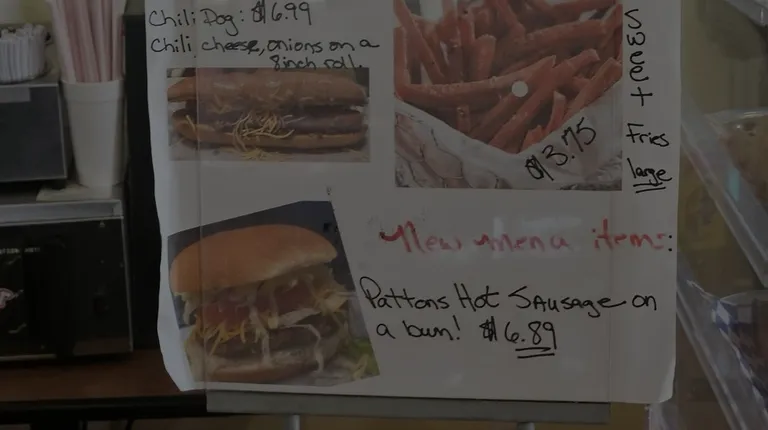 Chili Dog: $6.99
Chili, cheese, onions on a
8inch roll.
$3.75
Sweet Fries
large
New menu items:
Pattons Hot Sausage on
a bun! $6.89